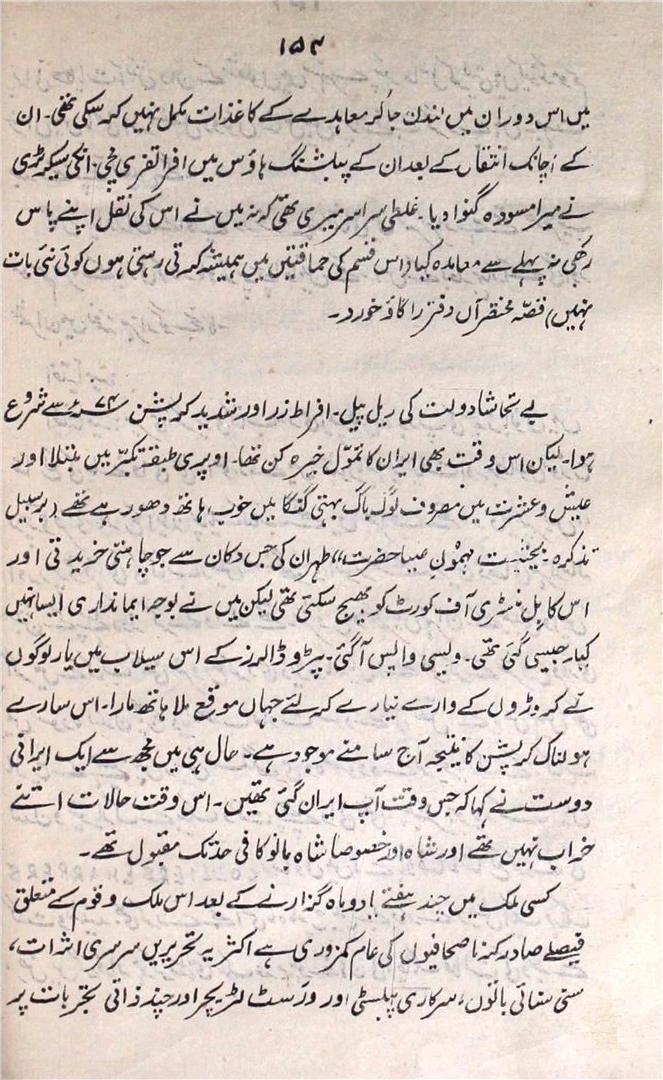 ۱۵۴
میں اس دوران میں لندن جا کر معاہدے کے کاغذات مکمل نہیں کر سکی تھی۔ ان
کے اچانک انتقال کے بعد ان کے پبلشنگ ہاؤس میں افراتفری مچی۔ انکی سیکریٹری
نے میرا مسودہ گنوا دیا۔ غلطی سراسر میری تھی کہ نہ میں نے اس کی نقل اپنے پاس
رکھی نہ پہلے سے معاہدہ کیا (اس قسم کی حماقتیں میں ہمیشہ کرتی رہتی ہوں کوئی نئی بات
نہیں) قصّہ مختصر آں دفتر را گاؤ خورد۔
بے تحاشا دولت کی ریل پیل۔ افراط زر اور شدید کرپشن ۷۴ء سے شروع
ہوا۔ لیکن اس وقت بھی ایران کا تموّل خیرہ کن تھا۔ اوپری طبقہ تکبّر میں مبتلا اور
عیش و عشرت میں مصروف لوگ باگ بہتی گنگا میں خوب ہاتھ دھو رہے تھے (برسبیل
تذکرہ۔ بحیثیت "مہمونِ علیاحضرت" طہران کی جس دکان سے جو چاہتی خریدتی اور
اس کا بل منسٹری آف کورٹ کو بھیج سکتی تھی لیکن میں نے بوجہ ایمانداری ایسا نہیں
کیا۔ جیسی گئی تھی۔ ویسی واپس آ گئی۔ پیٹرو ڈالرز کے اس سیلاب میں یار لوگوں
نے کروڑوں کے وارے نیارے کر لئے جہاں موقع ملا ہاتھ مارا۔ اس سارے
ہولناک کرپشن کا نتیجہ آج سامنے موجود ہے۔ حال ہی میں مجھ سے ایک ایرانی
دوست نے کہا کہ جس وقت آپ ایران گئی تھیں۔ اس وقت حالات اتنے
خراب نہیں تھے اور شاہ اور خصوصاً شاہ بانو کافی حد تک مقبول تھے۔
کسی ملک میں چند ہفتے یا دو ماہ گزارنے کے بعد اس ملک و قوم کے متعلق
فیصلے صادر کرنا صحافیوں کی عام کمزوری ہے اکثر یہ تحریریں سرسری اثرات،
سنی سنائی باتوں، سرکاری پبلسٹی اور ورسٹ لٹریچر اور چند ذاتی تجربات پر